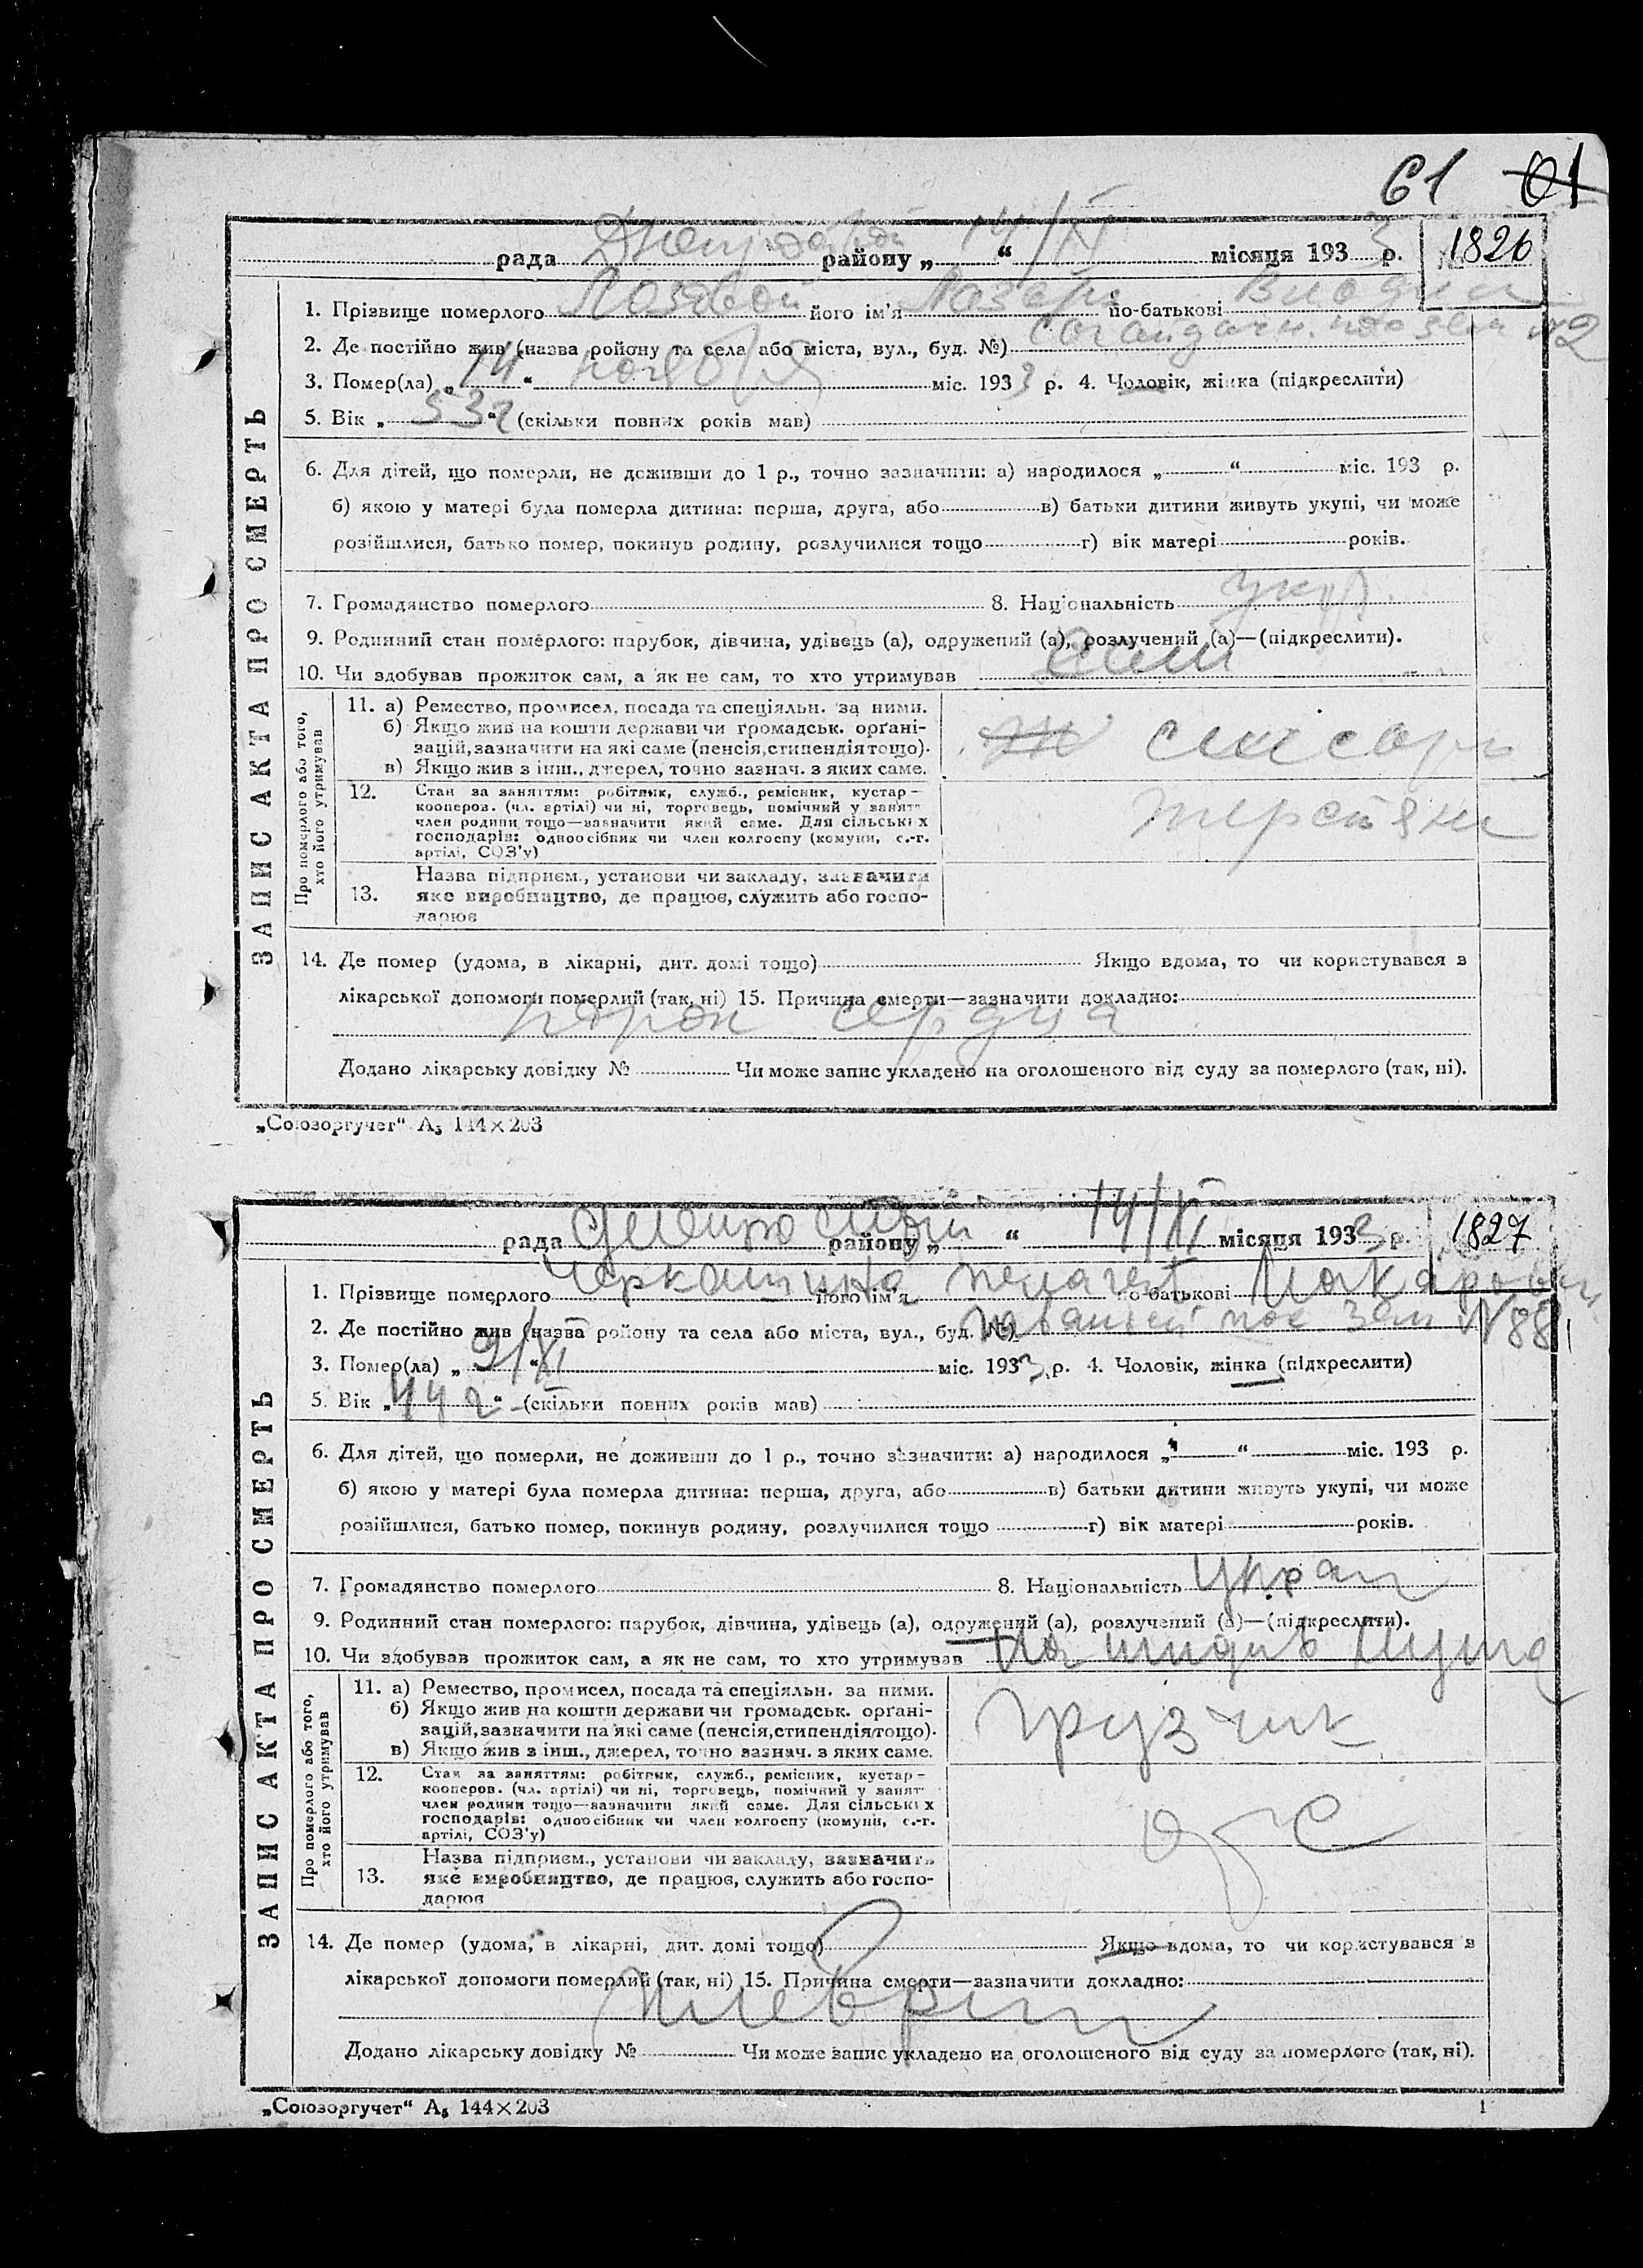 61 61
рада Днепров району „ 14/XI “ місяця 193 3 р. № 1826
ЗАПИС АКТА ПРО СМЕРТЬ
1. Прізвище померлого Лозовой його ім'я Лазарь по-батькові
2. Де постійно жив (назва району та села або міста, вул., буд. №) №2
3. Помер(ла) „ 14 “ ноября міс. 193 3 р. 4. Чоловік, жінка (підкреслити)
5. Вік „ 53 г “ (скільки повних років мав)
6. Для дітей, що померли, не доживши до 1 р., точно зазначити: а) народилося „ “ міс. 193 р.
б) якою у матері була померла дитина: перша, друга, або в) батьки дитини живуть укупі, чи може
розійшлися, батько помер, покинув родину, розлучилися тощо г) вік матері років.
7. Громадянство померлого 8. Національність укр.
9. Родинний стан померлого: парубок, дівчина, удівець (а), одружений (а), розлучений (а)—(підкреслити).
10. Чи здобував прожиток сам, а як не сам, то хто утримував Сам
Про померлого або того, хто його утримував
11. а) Ремество, промисел, посада та спеціяльн. за ними.
б) Якщо жив на кошти держави чи громадськ. орґані-
зацій, зазначити на які саме (пенсія, стипендія тощо).
в) Якщо жив з інш., джерел, точно зазнач. з яких саме.
слесарь
12. Стан за заняттям: робітник, служб., ремісник, кустар—
кооперов. (чл. артілі) чи ні, торговець, помічний у занят-
член родини тощо—зазначити який саме. Для сільських
господарів: одноосібник чи член колгоспу (комуни, с.-г.
артілі, СОЗ'у)
13. Назва підприєм., установи чи закладу, зазначити
яке виробництво, де працює, служить або госпо-
дарює
14. Де помер (удома, в лікарні, дит. домі тощо) Якщо вдома, то чи користувався з
лікарської допомоги померлий (так, ні) 15. Причина смерти—зазначити докладно:
порок сердца
Додано лікарську довідку № Чи може запис укладено на оголошеного від суду за померлого (так, ні).
„Союзоргучет“ А₅ 144×203
рада району „ “ 14/XI місяця 193 3 р. 1827
ЗАПИС АКТА ПРО СМЕРТЬ
1. Прізвище померлого Черкашина його ім'я Пелагея по-батькові Макаровн
2. Де постійно жив (назва району та села або міста, вул., буд. №) пос зем N 88
3. Помер(ла) „ 9/XI “ міс. 193 3 р. 4. Чоловік, жінка (підкреслити)
5. Вік „ 44 г “ (скільки повних років мав)
6. Для дітей, що померли, не доживши до 1 р., точно зазначити: а) народилося „ “ міс. 193 р.
б) якою у матері була померла дитина: перша, друга, або в) батьки дитини живуть укупі, чи може
розійшлися, батько помер, покинув родину, розлучилися тощо г) вік матері років.
7. Громадянство померлого 8. Національність Украин
9. Родинний стан померлого: парубок, дівчина, удівець (а), одружений (а), розлучений (а)—(підкреслити).
10. Чи здобував прожиток сам, а як не сам, то хто утримував На иждив мужа
Про померлого або того, хто його утримував
11. а) Ремество, промисел, посада та спеціяльн. за ними.
б) Якщо жив на кошти держави чи громадськ. орґані-
зацій, зазначити на які саме (пенсія, стипендія тощо).
в) Якщо жив з інш., джерел, точно зазнач. з яких саме.
грузчик
12. Стан за заняттям: робітник, служб., ремісник, кустар—
кооперов. (чл. артілі) чи ні, торговець, помічний у занят-
член родини тощо—зазначити який саме. Для сільських
господарів: одноосібник чи член колгоспу (комуни, с.-г.
артілі, СОЗ'у)
13. Назва підприєм., установи чи закладу, зазначить
яке виробництво, де працює, служить або госпо-
дарює
14. Де помер (удома, в лікарні, дит. домі тощо) Якщо вдома, то чи користувався з
лікарської допомоги померлий (так, ні) 15. Причина смерти—зазначити докладно:
Плеврит
Додано лікарську довідку № Чи може запис укладено на оголошеного від суду за померлого (так, ні).
„Союзоргучет“ А₅ 144×203 1